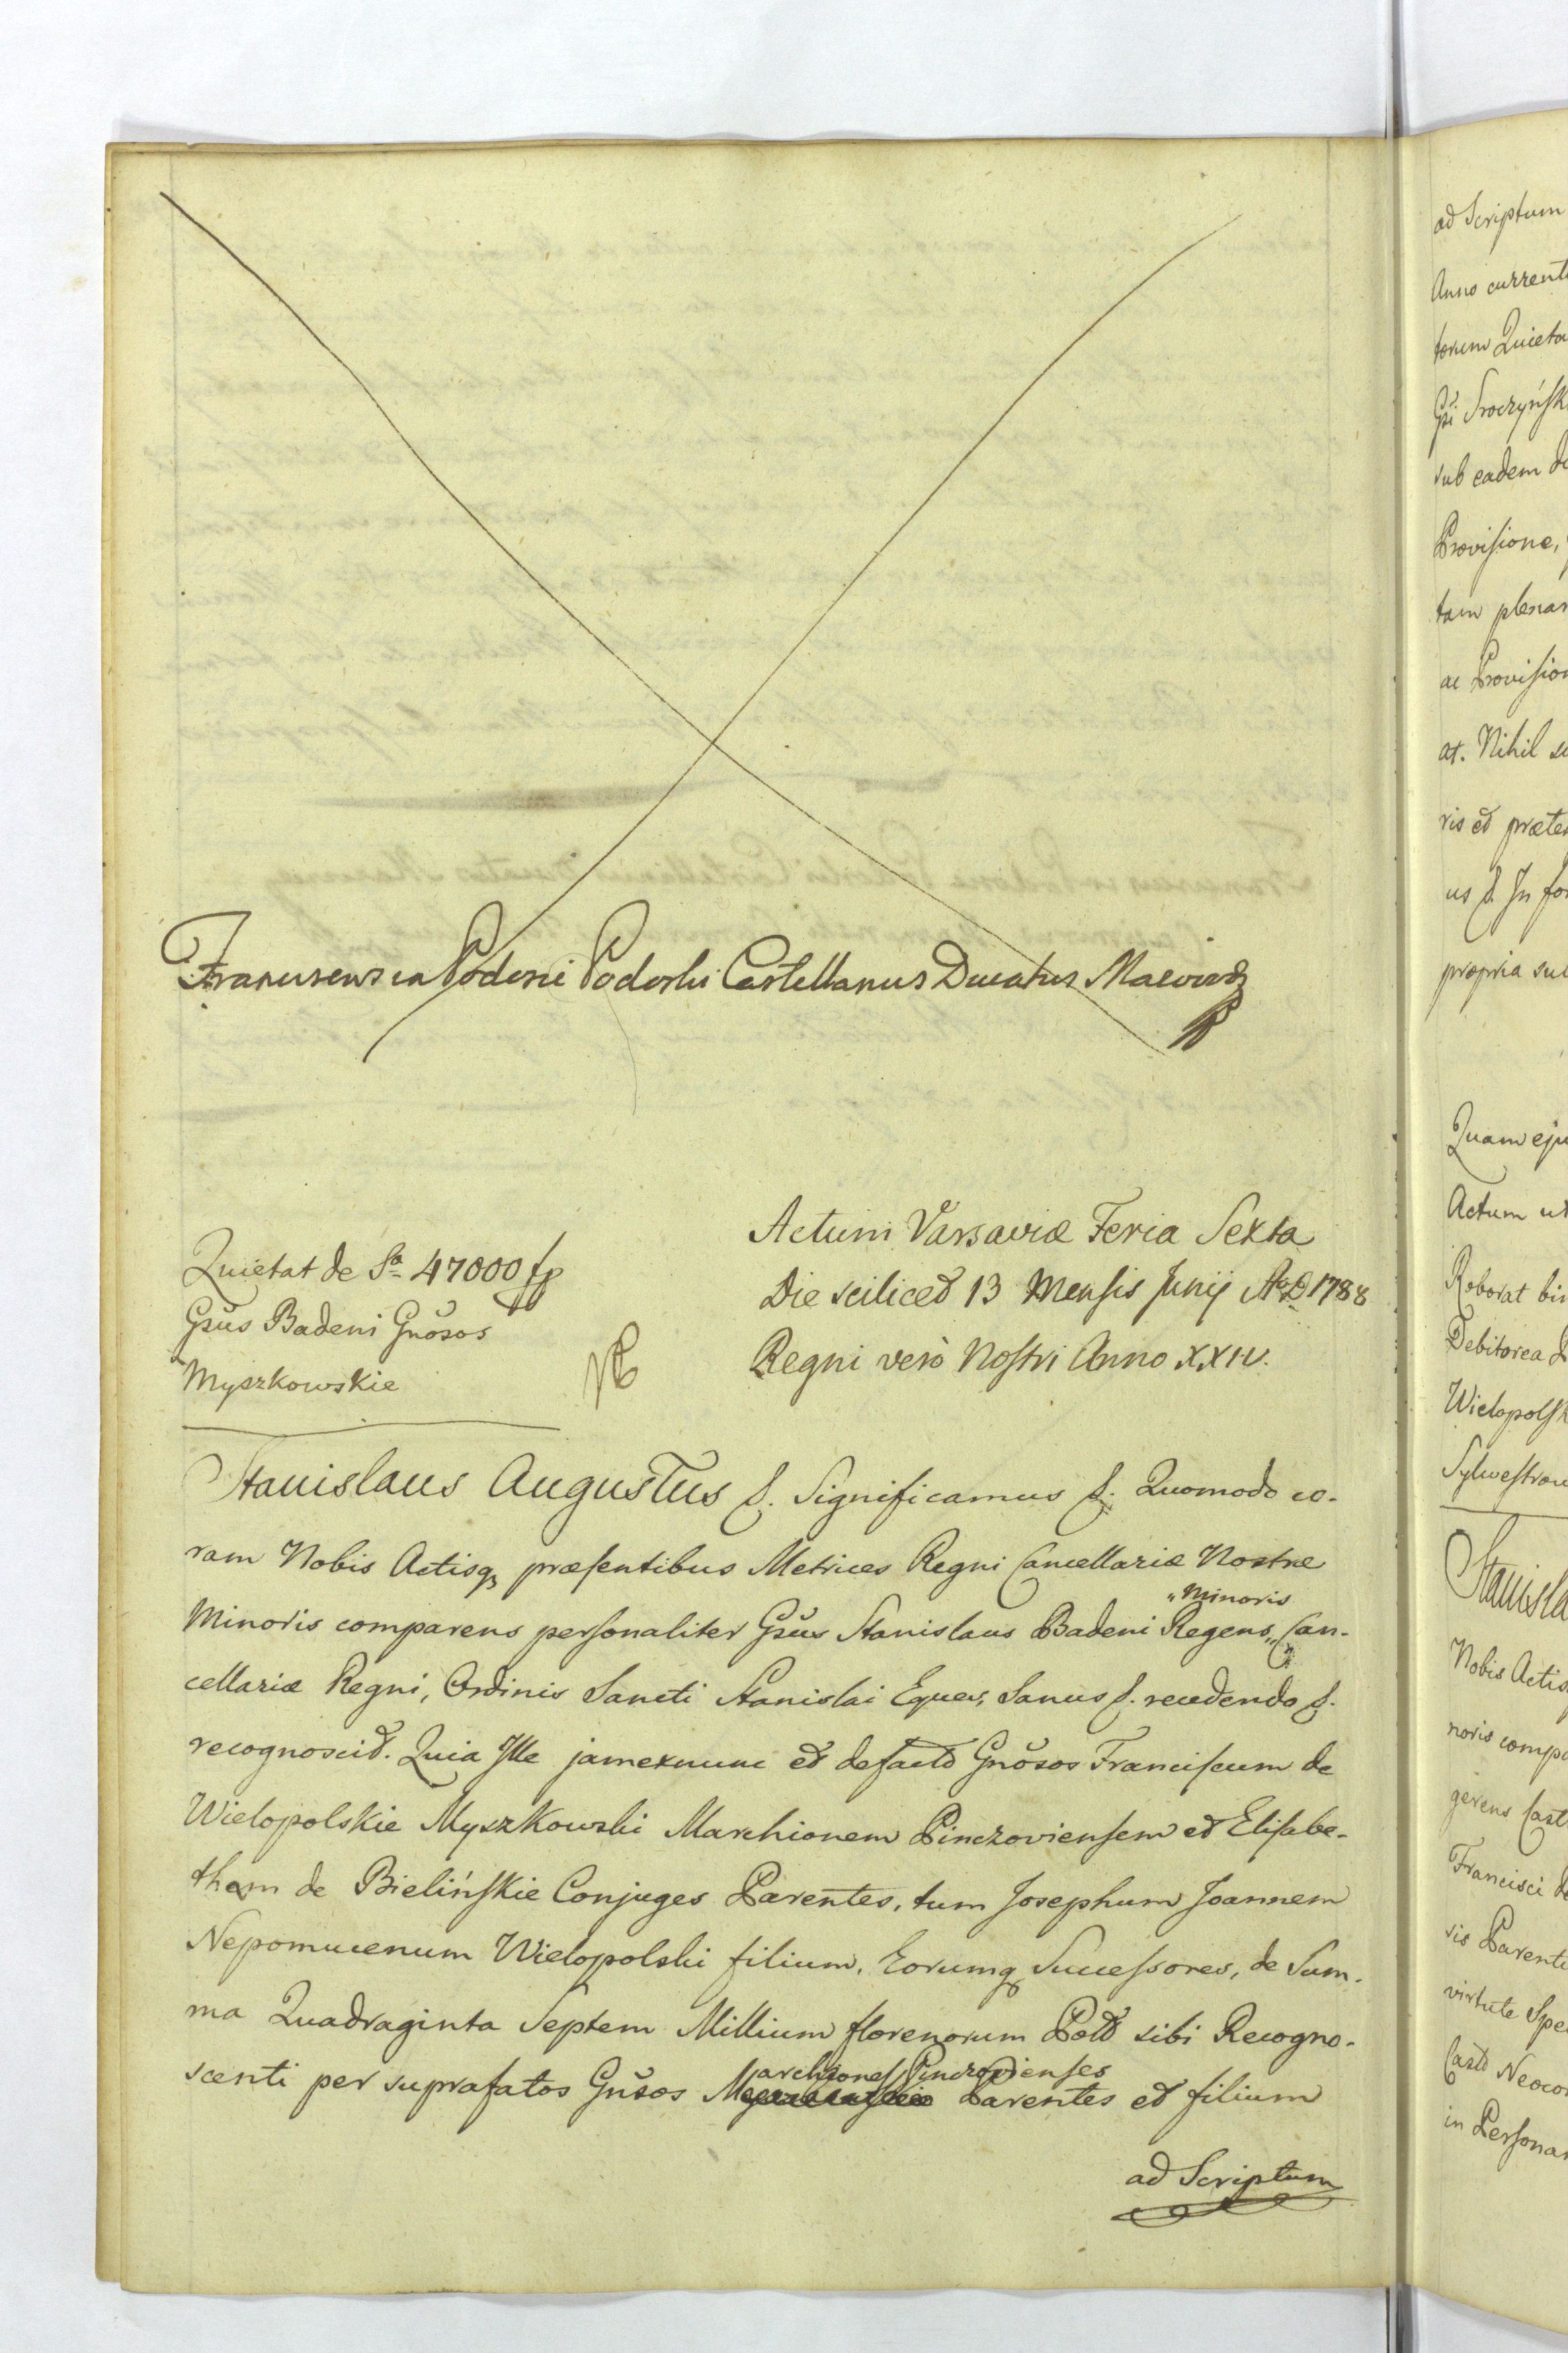 Franciscus in Podosie Podoski Castellanus Ducatus Mazoviæ
Quietat de Sa 47000 fp
Gsus Badeni Gnosos
Myszkowskie
Actum Varsaviæ Feria Sexta
Die scilicet 13 Mensis Junij Ao D 1788
Regni verò Nostri Anno XXIV.
Stanislaus Augustus &. Significamus &. Quomodo co-
ram Nobis Actisq præsentibus Metrices Regni Cancellariæ Nostræ
Minoris comparens personaliter Gsus Stanislaus Badeni Regens „Minoris Can-
cellariæ Regni, Ordinis Sancti Stanislai Eques, Sanus &. recedendo &.
recognoscit. Quia Ille jamexnunc et defacto Gnosos Franciscum de
Wielopolskie Myszkowski Marchionem Pinczoviensem et Elisabe-
tham de Bielińskie Conjuges Parentes, tum Josephum Joannem
Nepomucenum Wielopolski filium, Eorumq Successores, de Sum-
ma Quadraginta Septem Millium florenorum Poll sibi Recogno-
scenti per suprafatos Gnsos Marchiones Pinczovienses Parentes et filium
ad Scriptum
ad Scriptum
Anno current
torum Quieta
Gsi Sroczyńsk
sub eadem
Provisione,
tam plenar
ac Provision
at. Nihil
ris et præte
us &. In fo
propria su
Quam eju
Actum ut
Roborat
Debitorea
Wielopolsk
Sylwestrow
Stanisla
Nobis Actis
noris comp
gerens Cast
Francisci de
sis Parent
virtute Spe
Cast Neoco
in Persona